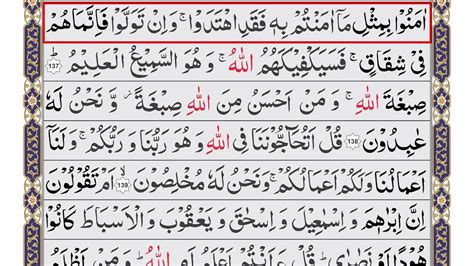 اٰمَنُوۡا بِمِثۡلِ مَاۤ اٰمَنۡتُمۡ بِهٖ فَقَدِ اهۡتَدَوۡا ۚ وَاِنۡ تَوَلَّوۡا فَاِنَّمَا هُمۡ
فِىۡ شِقَاقٍ ۚ فَسَيَكۡفِيۡكَهُمُ اللّٰهُ ۚ وَ هُوَ السَّمِيۡعُ الۡعَلِيۡمُ ؕ ﴿137﴾
صِبۡغَةَ اللّٰهِ ۚ وَ مَنۡ اَحۡسَنُ مِنَ اللّٰهِ صِبۡغَةً ۫ وَّ نَحۡنُ لَهٗ
عٰبِدُوۡنَ ﴿138﴾ قُلۡ اَتُحَآجُّوۡنَنَا فِى اللّٰهِ وَ هُوَ رَبُّنَا وَ رَبُّكُمۡ ۚ وَ لَنَاۤ
اَعۡمَالُنَا وَ لَكُمۡ اَعۡمَالُكُمۡ ۚ وَ نَحۡنُ لَهٗ مُخۡلِصُوۡنَ ۙ ﴿139﴾ اَمۡ تَقُوۡلُوۡنَ
اِنَّ اِبۡرٰهٖمَ وَ اِسۡمٰعِيۡلَ وَ اِسۡحٰقَ وَ يَعۡقُوۡبَ وَ الۡاَسۡبَاطَ كَانُوۡا
هُوۡدًا اَوۡ نَصٰرٰى ؕ قُلۡ ءَاَنۡتُمۡ اَعۡلَمُ اَمِ اللّٰهُ ؕ وَ مَنۡ اَظۡلَمُ